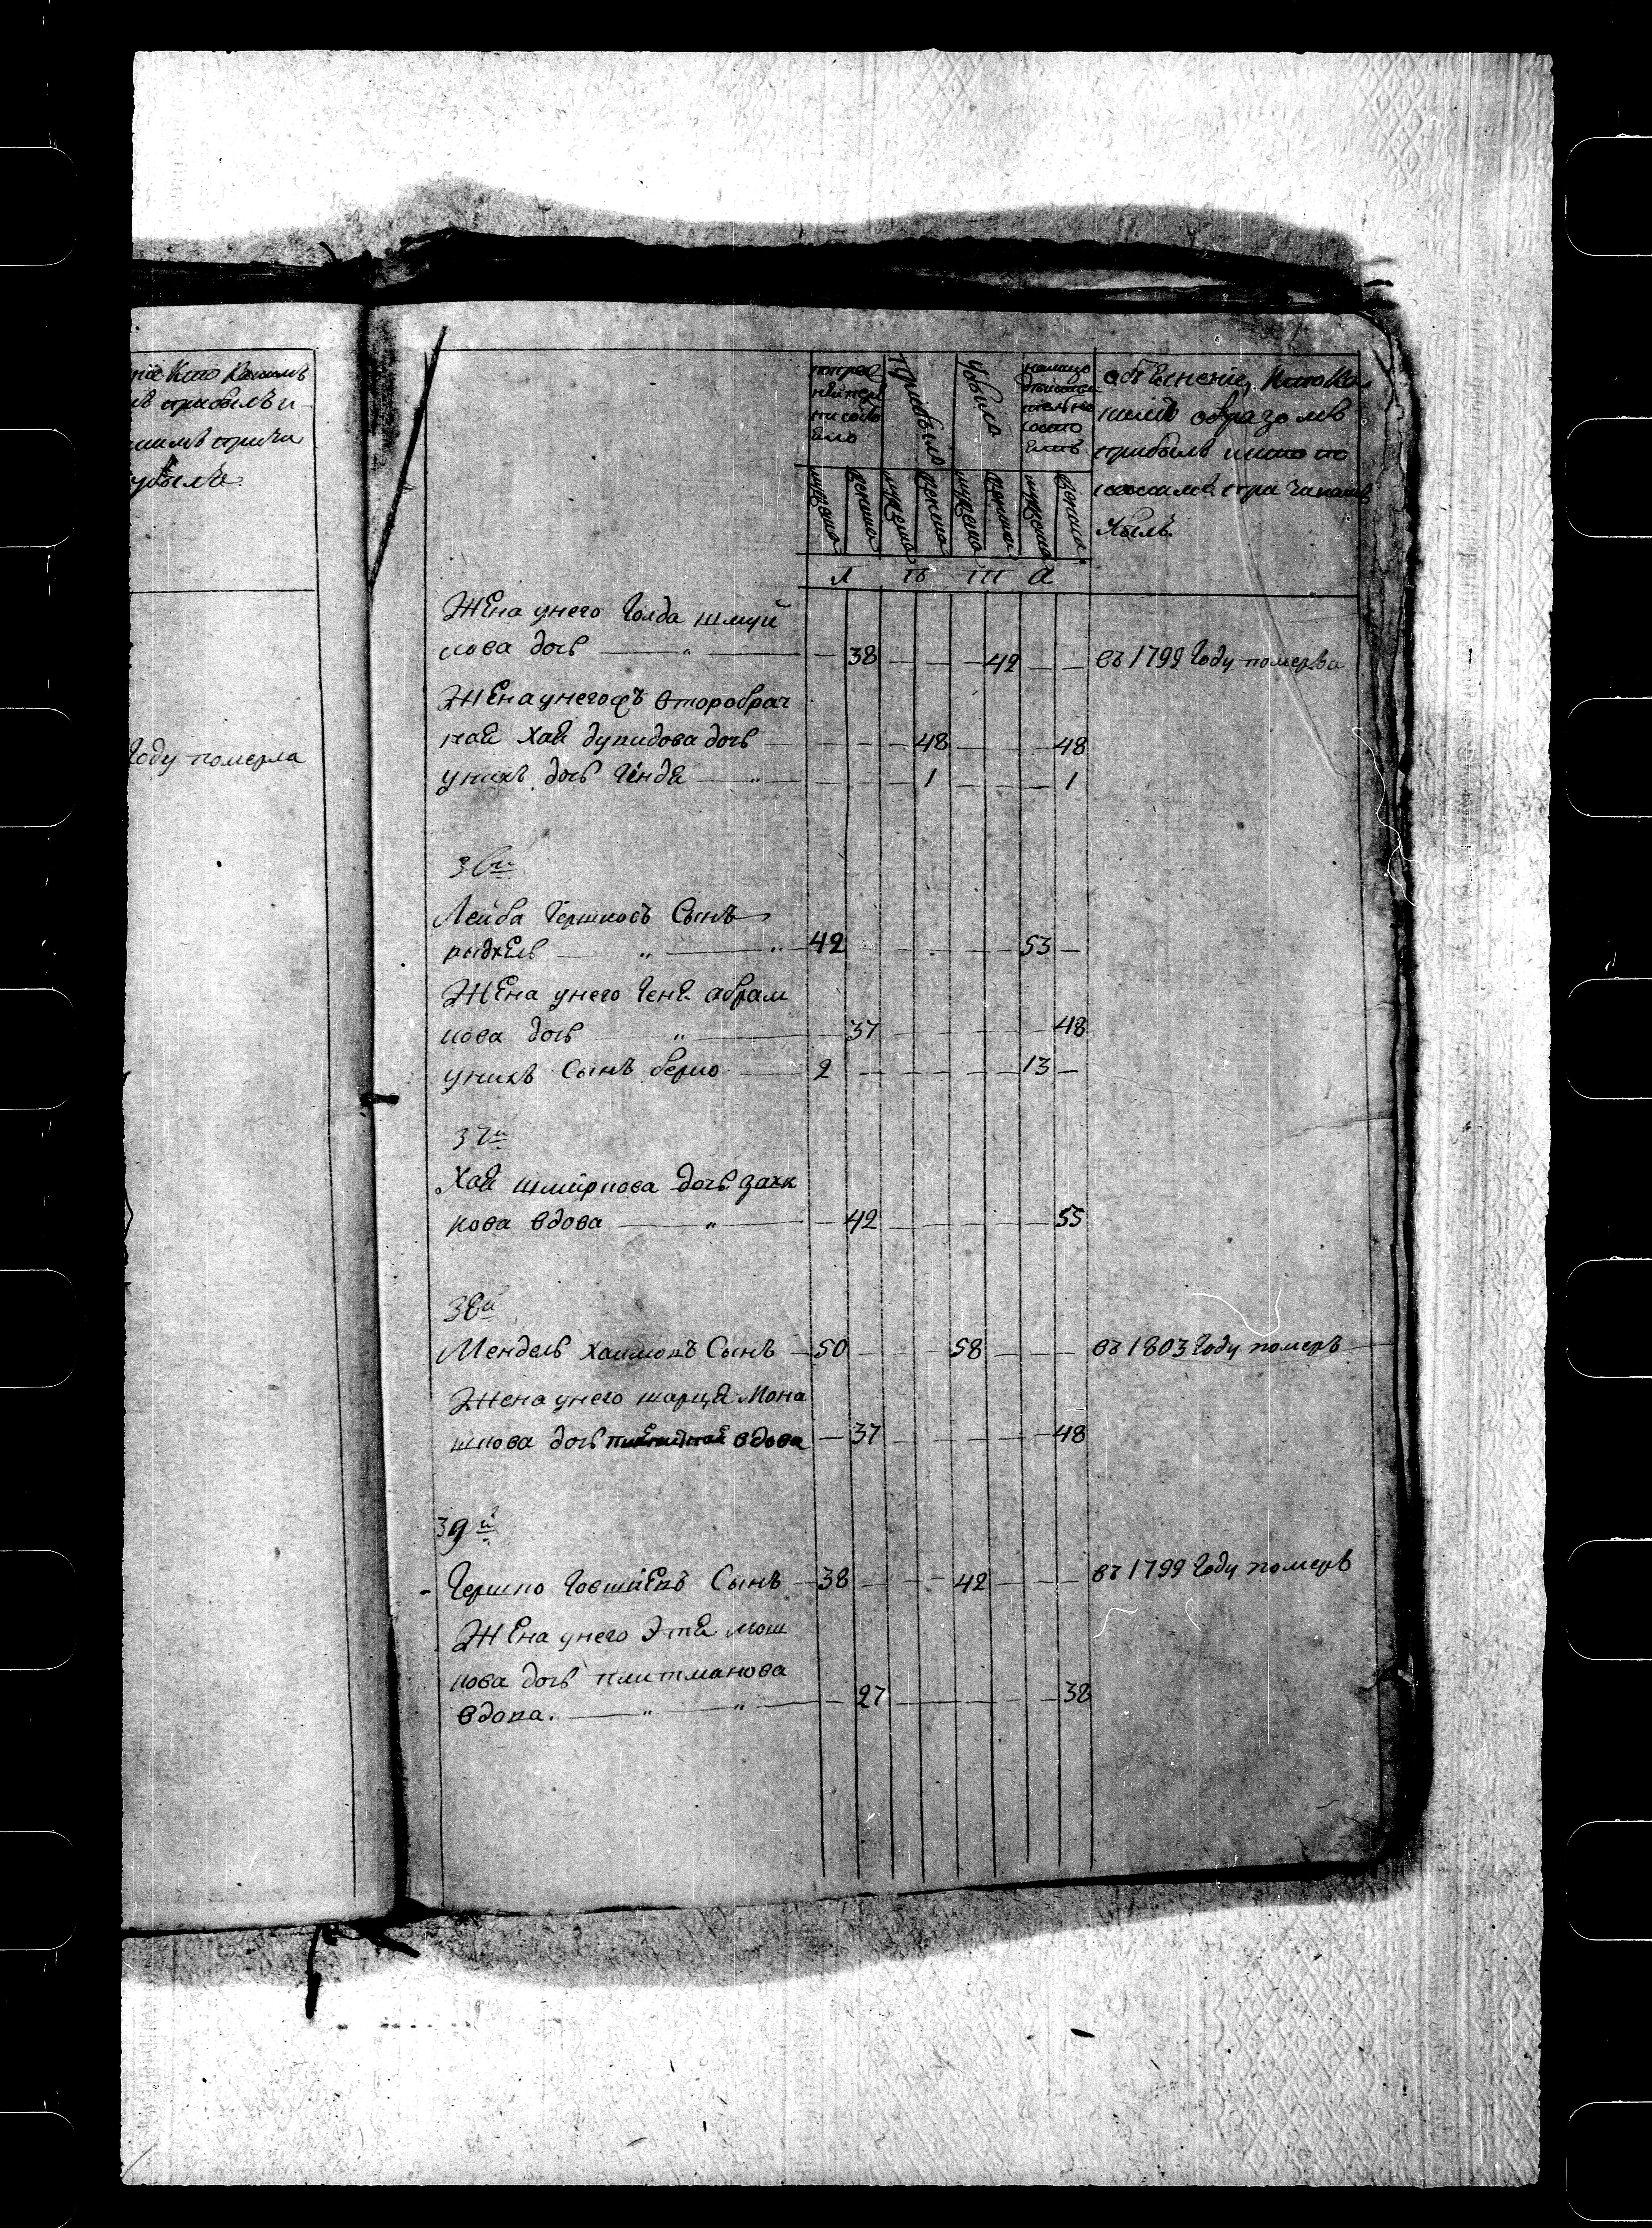 Кто
прибылъ и
причи
убылъ
Году померла
попред
ней пере
писи бы
ло
Прибыло
Убыло
налицо
состо
итъ
объяснение, кто ка
кимъ образомъ
прибылъ и кто по
какимъ причинамъ
убылъ.
мужеска женска мужеска женска мужеска женска мужеска женска
I II III
Жена унего Голда шмуй
лова дочь — " — 38 — — — 42 — — въ 1799 Году померла
Жена унего съ второбрач
ная Хая дочь — — — 48 — — — 48
унихъ дочь Генде — " — — — 1 — — — 1
36й
Лейба Гершковъ Сынъ
" — " 42 — — — — — 53 —
Жена унего Геня абрам
кова дочь — " — 37 — — — — — 48
унихъ Сынъ берко — 2 — — — — — 13 —
37й
Хая дочь
кова вдова — " — 42 — — — — — 55
38й
Мендель Хаимовъ Сынъ — 50 — — — 58 — — — въ 1803 Году померъ
Жена унего Мона
шкова дочь вдова — 37 — — — — — 48
39й
Гершко Сынъ — 38 — — — 42 — — — въ 1799 Году померъ
Жена унего Этя мош
кова дочь плитманова
вдова. — " — " — 27 — — — — — 38